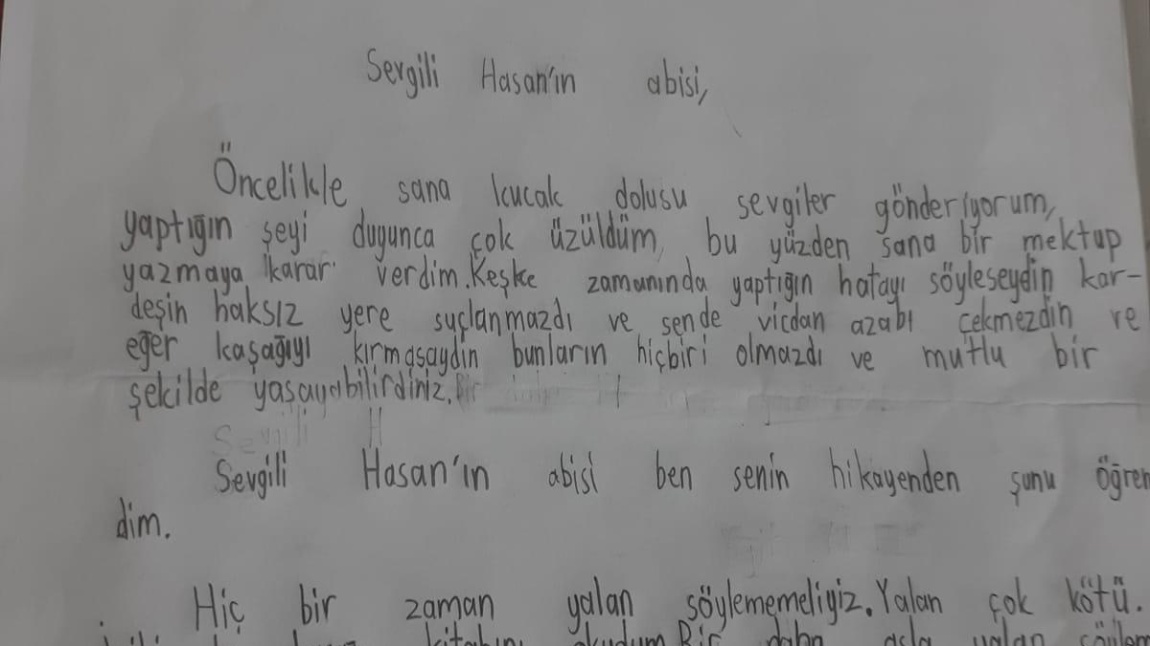 Sevgili Hasan'ın abisi,
Öncelikle sana kucak dolusu sevgiler gönderiyorum,
yaptığın şeyi duyunca çok üzüldüm, bu yüzden sana bir mektup
yazmaya karar verdim. Keşke zamanında yaptığın hatayı söyleseydin kar-
deşin haksız yere suçlanmazdı ve sende vicdan azabı çekmezdin ve
eğer kaşağıyı kırmasaydın bunların hiçbiri olmazdı ve mutlu bir
şekilde yaşayabilirdiniz.
Sevgili Hasan'ın abisi ben senin hikayenden şunu öğren
dim.
Hiç bir zaman yalan söylememeliyiz. Yalan çok kötü.
kitabını okudum. Bir daha asla yalan